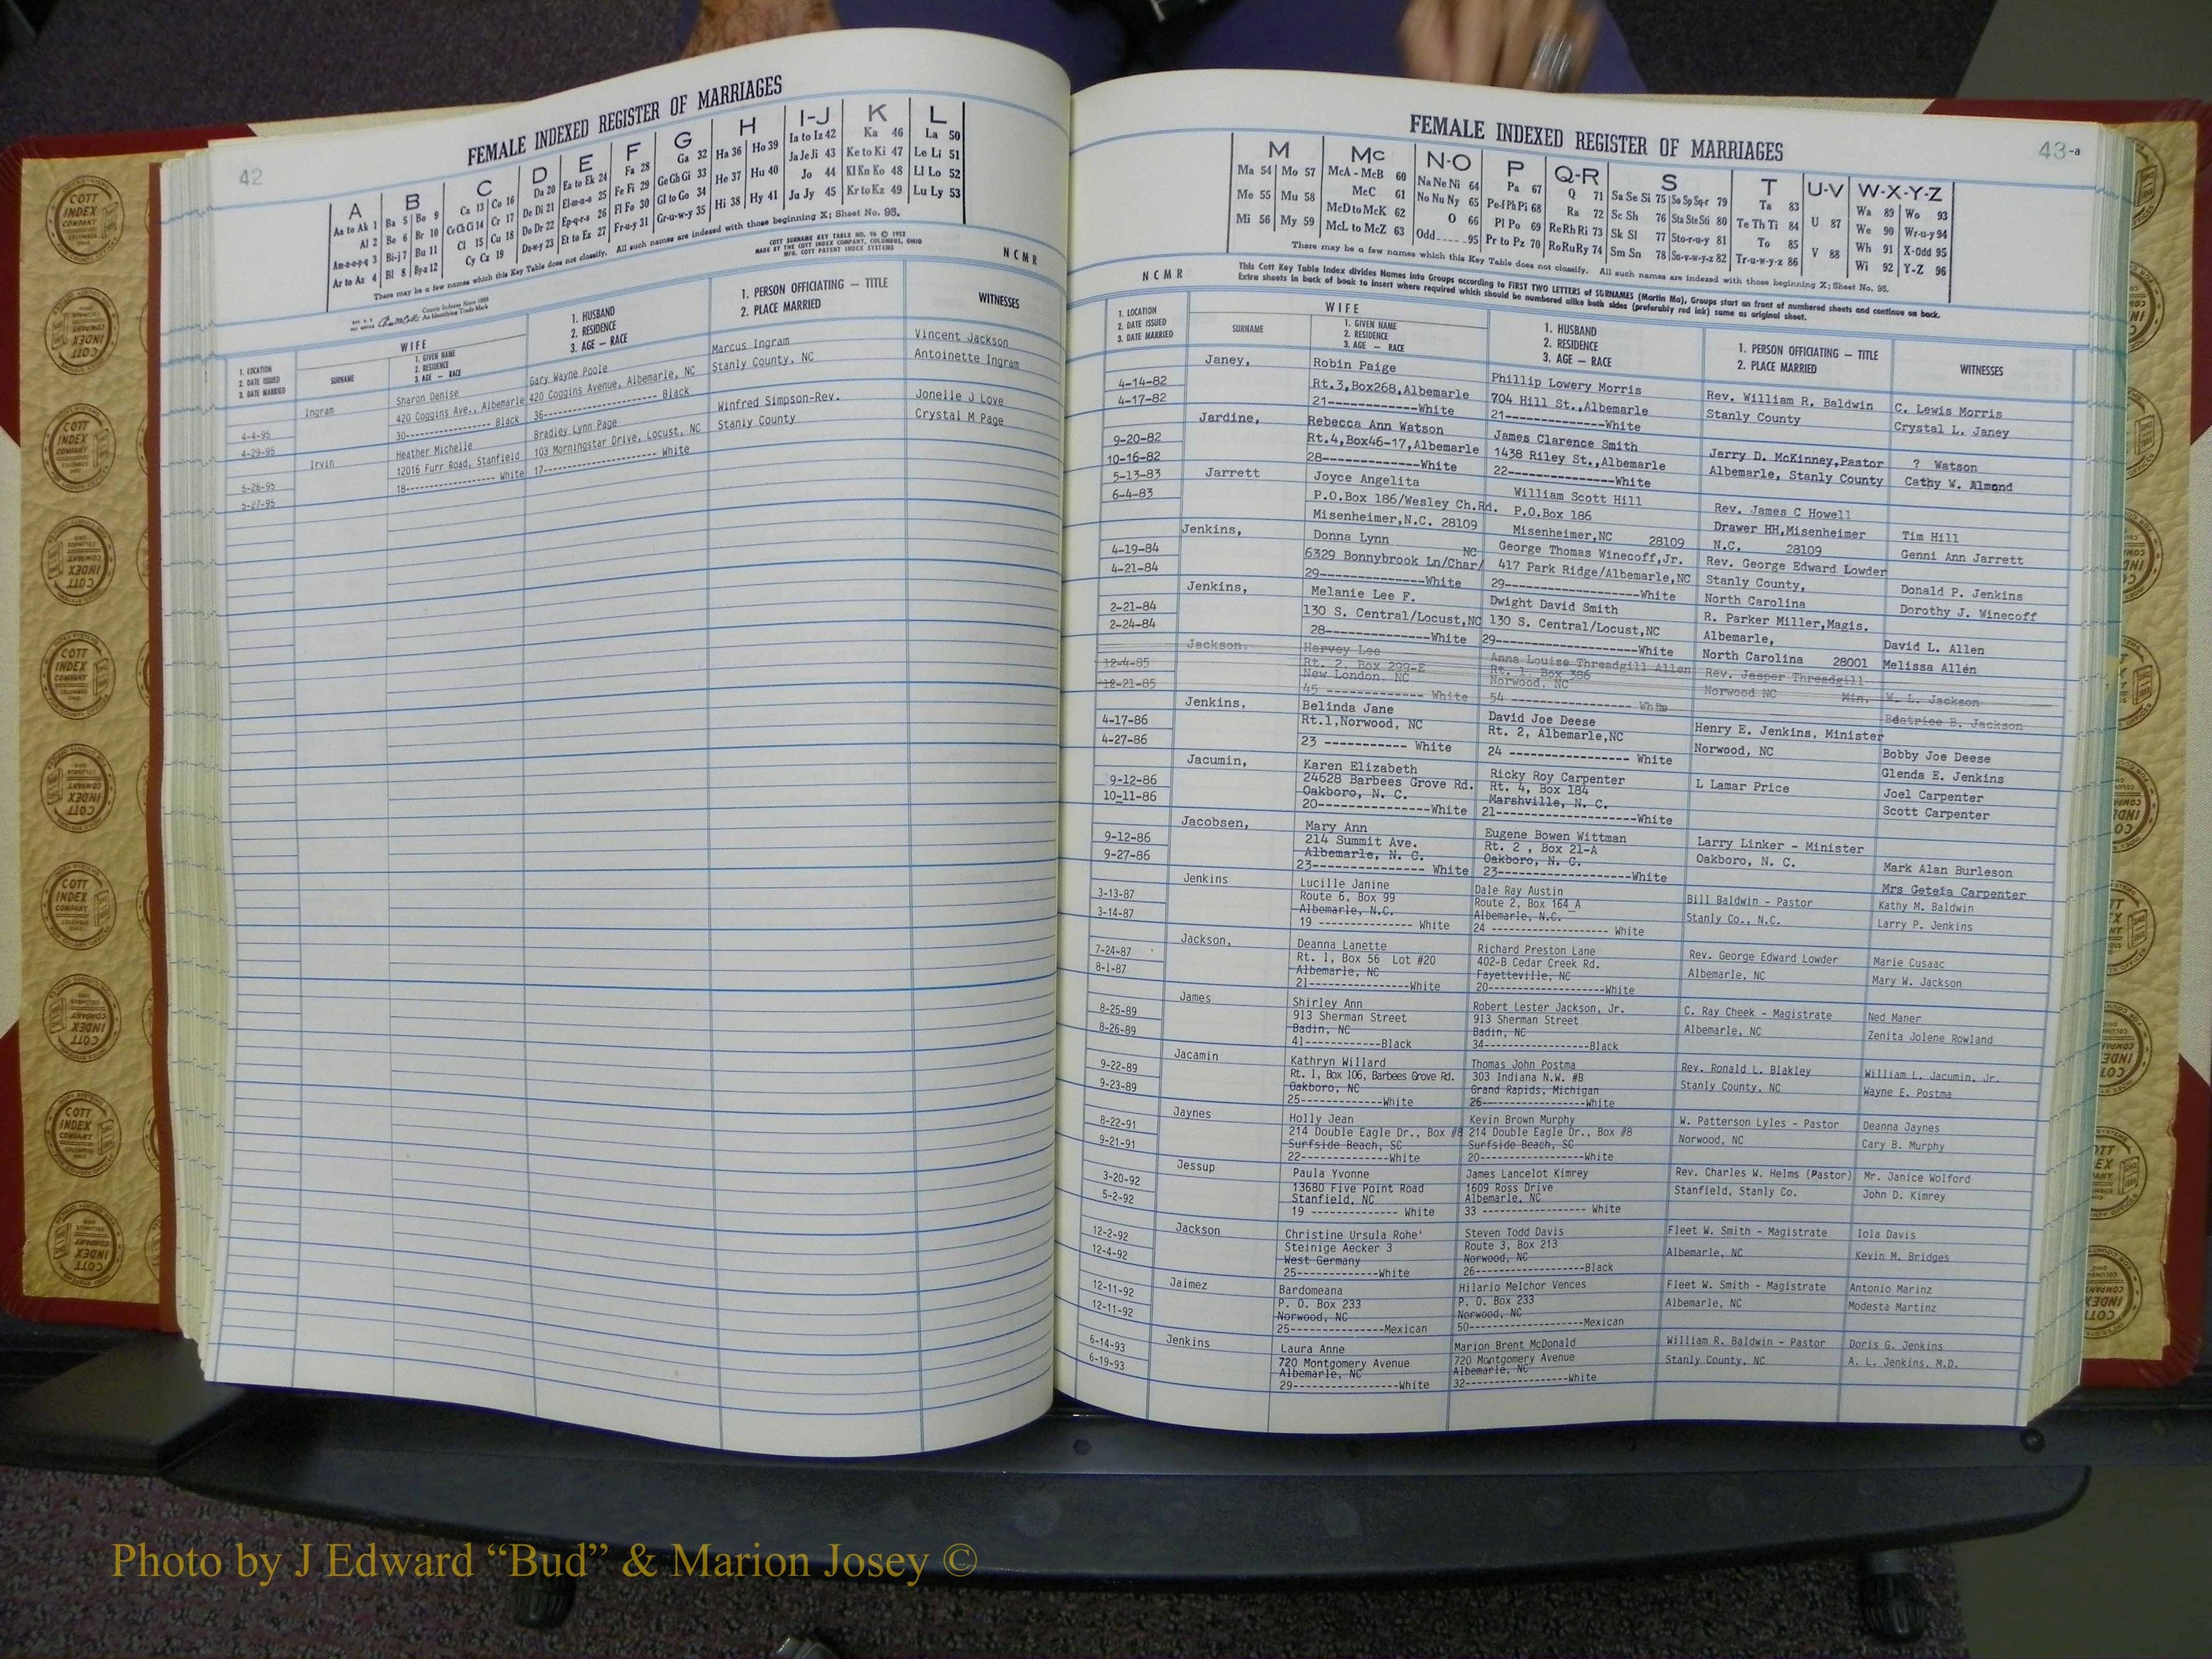 42
FEMALE INDEXED REGISTER OF MARRIAGES
A B C D E F G H I-J K L
Aa to Ak 1 Ba 5 Bo 9 Ca 13 Co 16 Da 20 Ea to Ek 24 Fa 28 Ga 32 Ha 36 Ho 39 Ia to Iz 42 Ka 46 La 50
Al 2 Be 6 Br 10 Ce Ch Ci 14 Cr 17 De Di 21 El-m-n-o 25 Fe Fi 29 Ge Gh Gi 33 He 37 Hu 40 Ja Je Ji 43 Ke to Ki 47 Le Li 51
Am-n-o-p-q 3 Bi-j 7 Bu 11 Cl 15 Cu 18 Do Dr 22 Ep-q-r-s 26 Fl Fo 30 Gl to Go 34 Hi 38 Hy 41 Jo 44 Kl Kn Ko 48 Ll Lo 52
Ar to Az 4 Bl 8 By-z 12 Cy Cz 19 Du-w-y 23 Et to Ez 27 Fr-u-y 31 Gr-u-w-y 35 Ju Jy 45 Kr to Kz 49 Lu Ly 53
There may be a few names which this Key Table does not classify. All such names are indexed with those beginning X; Sheet No. 95.
COTT SURNAME KEY TABLE NO. 96 © 1952
MADE BY THE COTT INDEX COMPANY, COLUMBUS, OHIO
MFG. COTT PATENT INDEX SYSTEMS
County Indexes Since 1888
An Identifying Trade Mark
NCMR
1. LOCATION
2. DATE ISSUED
3. DATE MARRIED
WIFE
SURNAME
1. GIVEN NAME
2. RESIDENCE
3. AGE — RACE
1. HUSBAND
2. RESIDENCE
3. AGE — RACE
1. PERSON OFFICIATING — TITLE
2. PLACE MARRIED
WITNESSES
Ingram Sharon Denise Gary Wayne Poole Marcus Ingram Vincent Jackson
4-4-95 420 Coggins Ave., Albemarle 420 Coggins Avenue, Albemarle, NC Stanly County, NC Antoinette Ingram
4-29-95 30---------------- Black 36-------------------- Black
Irvin Heather Michelle Bradley Lynn Page Winfred Simpson-Rev. Jonelle J Love
5-26-95 12016 Furr Road, Stanfield 103 Morningstar Drive, Locust, NC Stanly County Crystal M Page
5-27-95 18---------------- White 17-------------------- White
43-a
FEMALE INDEXED REGISTER OF MARRIAGES
M Mc N-O P Q-R S T U-V W-X-Y-Z
Ma 54 Mo 57 McA - McB 60 Na Ne Ni 64 Pa 67 Q 71 Sa Se Si 75 So Sp Sq-r 79 Ta 83 U 87 Wa 89 Wo 93
Me 55 Mu 58 McC 61 No Nu Ny 65 Pe-f Ph Pi 68 Ra 72 Sc Sh 76 Sta Ste Sti 80 Te Th Ti 84 V 88 We 90 Wr-u-y 94
Mi 56 My 59 McD to McK 62 O 66 Pl Po 69 Re Rh Ri 73 Sk Sl 77 Sto-r-u-y 81 To 85 Wh 91 X-Odd 95
McL to McZ 63 Odd 95 Pr to Pz 70 Ro Ru Ry 74 Sm Sn 78 Su-v-w-y-z 82 Tr-u-w-y-z 86 Wi 92 Y-Z 96
There may be a few names which this Key Table does not classify. All such names are indexed with those beginning X; Sheet No. 95.
NCMR
This Cott Key Table Index divides Names into Groups according to FIRST TWO LETTERS of SURNAMES (Martin Ma), Groups start on front of numbered sheets and continue on back.
Extra sheets in back of book to insert where required which should be numbered alike both sides (preferably red ink) same as original sheet.
1. LOCATION
2. DATE ISSUED
3. DATE MARRIED
WIFE
SURNAME
1. GIVEN NAME
2. RESIDENCE
3. AGE — RACE
1. HUSBAND
2. RESIDENCE
3. AGE — RACE
1. PERSON OFFICIATING — TITLE
2. PLACE MARRIED
WITNESSES
Janey, Robin Paige Phillip Lowery Morris Rev. William R. Baldwin C. Lewis Morris
4-14-82 Rt.3,Box268,Albemarle 704 Hill St.,Albemarle Stanly County Crystal L. Janey
4-17-82 21------------White 21-------------White
Jardine, Rebecca Ann Watson James Clarence Smith Jerry D. McKinney,Pastor ? Watson
9-20-82 Rt.4,Box46-17,Albemarle 1438 Riley St.,Albemarle Albemarle, Stanly County Cathy W. Almond
10-16-82 28-------------White 22-------------White
5-13-83 Jarrett Joyce Angelita William Scott Hill Rev. James C Howell Tim Hill
6-4-83 P.O.Box 186/Wesley Ch.Rd. P.O.Box 186 Drawer HH,Misenheimer Genni Ann Jarrett
Misenheimer,N.C. 28109 Misenheimer,NC 28109 N.C. 28109
Jenkins, Donna Lynn George Thomas Winecoff,Jr. Rev. George Edward Lowder Donald P. Jenkins
4-19-84 6329 Bonnybrook Ln/Char/ NC 417 Park Ridge/Albemarle,NC Stanly County, Dorothy J. Winecoff
4-21-84 29--------------White 29-----------------White North Carolina
Jenkins, Melanie Lee F. Dwight David Smith R. Parker Miller,Magis. David L. Allen
2-21-84 130 S. Central/Locust,NC 130 S. Central/Locust,NC Albemarle, Melissa Allen
2-24-84 28--------------White 29-----------------White North Carolina 28001
Jackson, Harvey Lee Anna Louise Threadgill Allen Rev. Jasper Threadgill W. L. Jackson
12-4-85 Rt. 2, Box 299-E Rt. 1, Box 386 Norwood NC Min. Beatrice B. Jackson
12-21-85 New London, NC Norwood, NC
45 ------------- White 54 ---------------- White
Jenkins, Belinda Jane David Joe Deese Henry E. Jenkins, Minister Bobby Joe Deese
4-17-86 Rt.1,Norwood, NC Rt. 2, Albemarle,NC Norwood, NC Glenda E. Jenkins
4-27-86 23 ----------- White 24 ---------------- White
Jacumin, Karen Elizabeth Ricky Roy Carpenter L Lamar Price Joel Carpenter
9-12-86 24628 Barbees Grove Rd. Rt. 4, Box 184 Scott Carpenter
10-11-86 Oakboro, N. C. Marshville, N. C.
20----------------White 21--------------------White
Jacobsen, Mary Ann Eugene Bowen Wittman Larry Linker - Minister Mark Alan Burleson
9-12-86 214 Summit Ave. Rt. 2 , Box 21-A Oakboro, N. C. Mrs Geteia Carpenter
9-27-86 Albemarle, N. C. Oakboro, N. C.
23---------------- White 23-------------------White
Jenkins Lucille Janine Dale Ray Austin Bill Baldwin - Pastor Kathy M. Baldwin
3-13-87 Route 6, Box 99 Route 2, Box 164 A Stanly Co., N.C. Larry P. Jenkins
3-14-87 Albemarle, N.C. Albemarle, N.C.
19 -------------- White 24 ------------------ White
Jackson, Deanna Lanette Richard Preston Lane Rev. George Edward Lowder Marie Cusaac
7-24-87 Rt. 1, Box 56 Lot #20 402-B Cedar Creek Rd. Albemarle, NC Mary W. Jackson
8-1-87 Albemarle, NC Fayetteville, NC
21----------------White 20------------------White
James Shirley Ann Robert Lester Jackson, Jr. C. Ray Cheek - Magistrate Ned Maner
8-25-89 913 Sherman Street 913 Sherman Street Albemarle, NC Zenita Jolene Rowland
8-26-89 Badin, NC Badin, NC
41------------Black 34-----------------Black
Jacamin Kathryn Willard Thomas John Postma Rev. Ronald L. Blakley William L. Jacumin, Jr.
9-22-89 Rt. 1, Box 106, Barbees Grove Rd. 303 Indiana N.W. #B Stanly County, NC Wayne E. Postma
9-23-89 Oakboro, NC Grand Rapids, Michigan
25-------------White 26----------------White
Jaynes Holly Jean Kevin Brown Murphy W. Patterson Lyles - Pastor Deanna Jaynes
8-22-91 214 Double Eagle Dr., Box #8 214 Double Eagle Dr., Box #8 Norwood, NC Cary B. Murphy
9-21-91 Surfside Beach, SC Surfside Beach, SC
22--------------White 20------------------White
Jessup Paula Yvonne James Lancelot Kimrey Rev. Charles W. Helms (Pastor) Mr. Janice Wolford
3-20-92 13680 Five Point Road 1609 Ross Drive Stanfield, Stanly Co. John D. Kimrey
5-2-92 Stanfield, NC Albemarle, NC
19 ------------- White 33 ---------------- White
Jackson Christine Ursula Rohe' Steven Todd Davis Fleet W. Smith - Magistrate Iola Davis
12-2-92 Steinige Aecker 3 Route 3, Box 213 Albemarle, NC Kevin M. Bridges
12-4-92 West Germany Norwood, NC
25-------------White 26-----------------Black
Jaimez Bardomeana Hilario Melchor Vences Fleet W. Smith - Magistrate Antonio Marinz
12-11-92 P. O. Box 233 P. O. Box 233 Albemarle, NC Modesta Martinz
12-11-92 Norwood, NC Norwood, NC
25---------------Mexican 50-----------------Mexican
Jenkins Laura Anne Marion Brent McDonald William R. Baldwin - Pastor Doris G. Jenkins
6-14-93 720 Montgomery Avenue 720 Montgomery Avenue Stanly County, NC A. L. Jenkins, M.D.
6-19-93 Albemarle, NC Albemarle, NC
29------------------White 32----------------White
COTT INDEX COMPANY COLUMBUS OHIO
Photo by J Edward “Bud” & Marion Josey ©